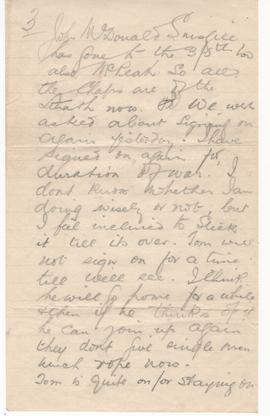 3
John McDonald
has gone to the 3/8th too
also McPeak So all
the Chaps are of the
now. We were
asked about Signing on
again yesterday. I have
signed on again for
duration of war. I
dont know whether I am
doing wisely or not, but
I feel inclined to stick
it till its over. Tom will
not sign on for a time
till well see. I think
he will go home for a while
& then if he thinks of it
he can join up again
they dont give single men
much rope now.
Tom is quite on for staying on